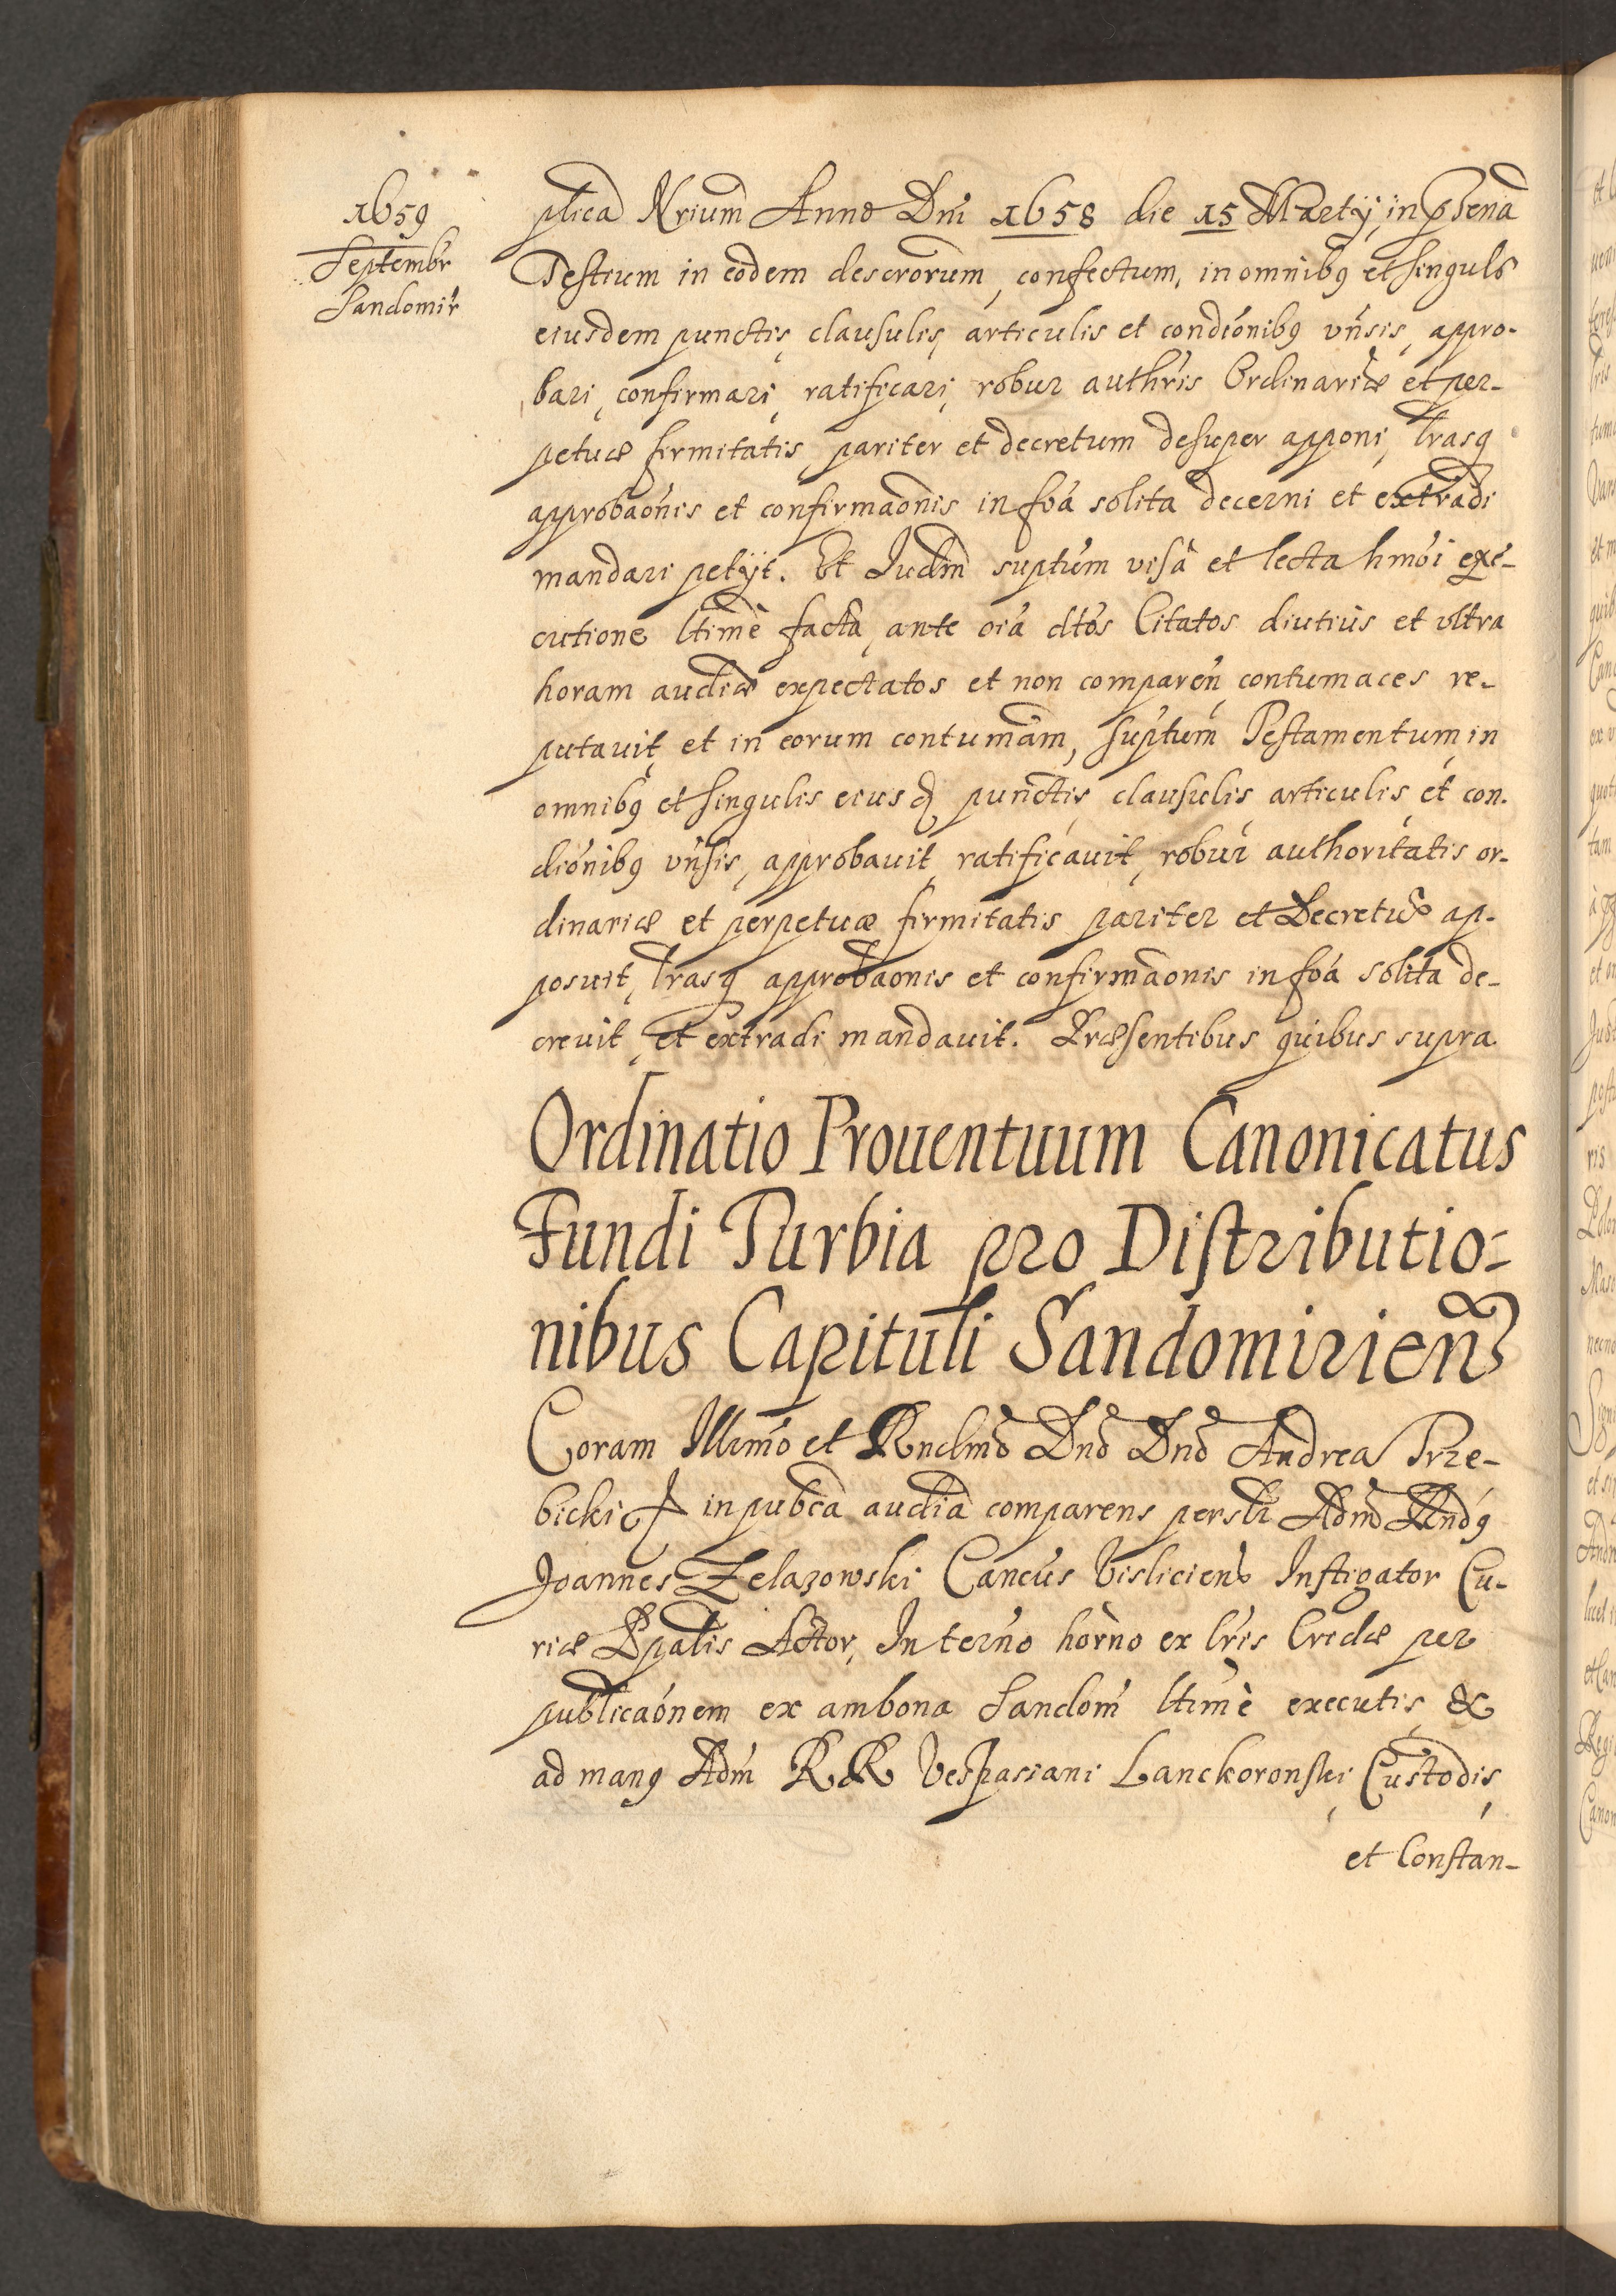 1659
Septembr
Sandomir
plica Nrium Anno Dni 1658 die 15 Martij, in pñtena
Testium in eodem descrorum, confectum, in omnibq et singuls
eiusdem punctis, clausulis, articulis et condionibq vñsis, appro-
bari, confirmari, ratificari, robur authris Ordinariæ et per-
petuæ firmitatis, pariter et decretum desuper apponi, lrasq
approbaonis et confirmaonis in foã solita decerni et extradi
mandari petijt. Et Iudm suptum visa et lecta hmoi exe-
cutione ltimè facta, ante oia dtos Citatos diutius et ultra
horam audiæ expectatos et non comparen, contumaces re-
putauit, et in eorum contumam, suptum Testamentum, in
omnibq et singulis eiusd punctis, clausulis, articulis, et con-
dionibq vñsis, approbauit, ratificauit, robur authoritatis or-
dinariæ et perpetuæ firmitatis pariter et Decretu ap-
posuit, lrasq approbaonis et confirmaonis in foã solita de-
creuit, et extradi mandauit. Præsentibus quibus supra.
Ordinatio Prouentuum Canonicatus
Fundi Turbia pro Distributio=
nibus Capituli Sandomirien
Coram Illmo et Rndmo Dno Dno Andrea Trze-
bicki in pubca audia comparens persli Adm Rndq
Joannes Zelazowski Cancus Visliciens Instigator Cu-
riæ Epalis Actor, In terno horno ex lris Cridæ per
publicaonem ex ambona Sandom ltimè executis &
ad manq Adm RR Vespasiani Lanckoronski, Custodis,
et Constan-